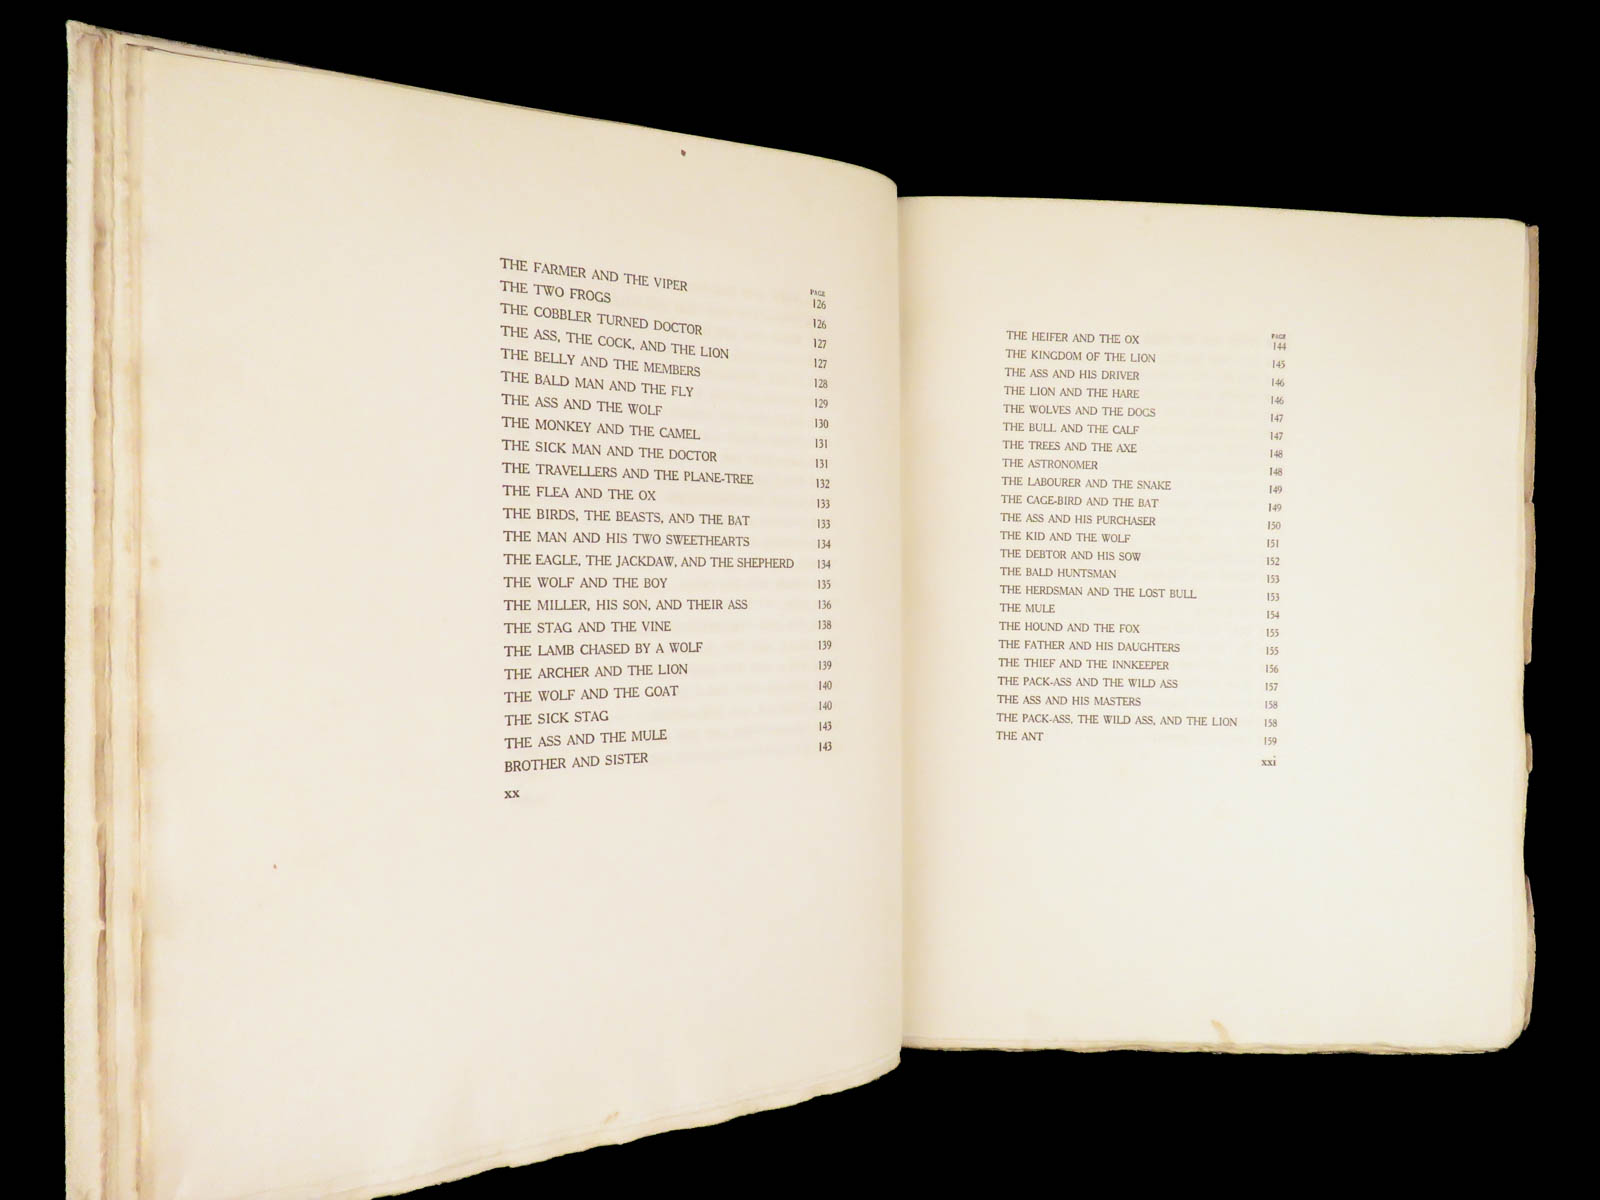 PAGE
THE FARMER AND THE VIPER 126
THE TWO FROGS 126
THE COBBLER TURNED DOCTOR 127
THE ASS, THE COCK, AND THE LION 127
THE BELLY AND THE MEMBERS 128
THE BALD MAN AND THE FLY 129
THE ASS AND THE WOLF 130
THE MONKEY AND THE CAMEL 131
THE SICK MAN AND THE DOCTOR 131
THE TRAVELLERS AND THE PLANE-TREE 132
THE FLEA AND THE OX 133
THE BIRDS, THE BEASTS, AND THE BAT 133
THE MAN AND HIS TWO SWEETHEARTS 134
THE EAGLE, THE JACKDAW, AND THE SHEPHERD 134
THE WOLF AND THE BOY 135
THE MILLER, HIS SON, AND THEIR ASS 136
THE STAG AND THE VINE 138
THE LAMB CHASED BY A WOLF 139
THE ARCHER AND THE LION 139
THE WOLF AND THE GOAT 140
THE SICK STAG 140
THE ASS AND THE MULE 143
BROTHER AND SISTER 143
xx
PAGE
THE HEIFER AND THE OX 144
THE KINGDOM OF THE LION 145
THE ASS AND HIS DRIVER 146
THE LION AND THE HARE 146
THE WOLVES AND THE DOGS 147
THE BULL AND THE CALF 147
THE TREES AND THE AXE 148
THE ASTRONOMER 148
THE LABOURER AND THE SNAKE 149
THE CAGE-BIRD AND THE BAT 149
THE ASS AND HIS PURCHASER 150
THE KID AND THE WOLF 151
THE DEBTOR AND HIS SOW 152
THE BALD HUNTSMAN 153
THE HERDSMAN AND THE LOST BULL 153
THE MULE 154
THE HOUND AND THE FOX 155
THE FATHER AND HIS DAUGHTERS 155
THE THIEF AND THE INNKEEPER 156
THE PACK-ASS AND THE WILD ASS 157
THE ASS AND HIS MASTERS 158
THE PACK-ASS, THE WILD ASS, AND THE LION 158
THE ANT 159
xxi